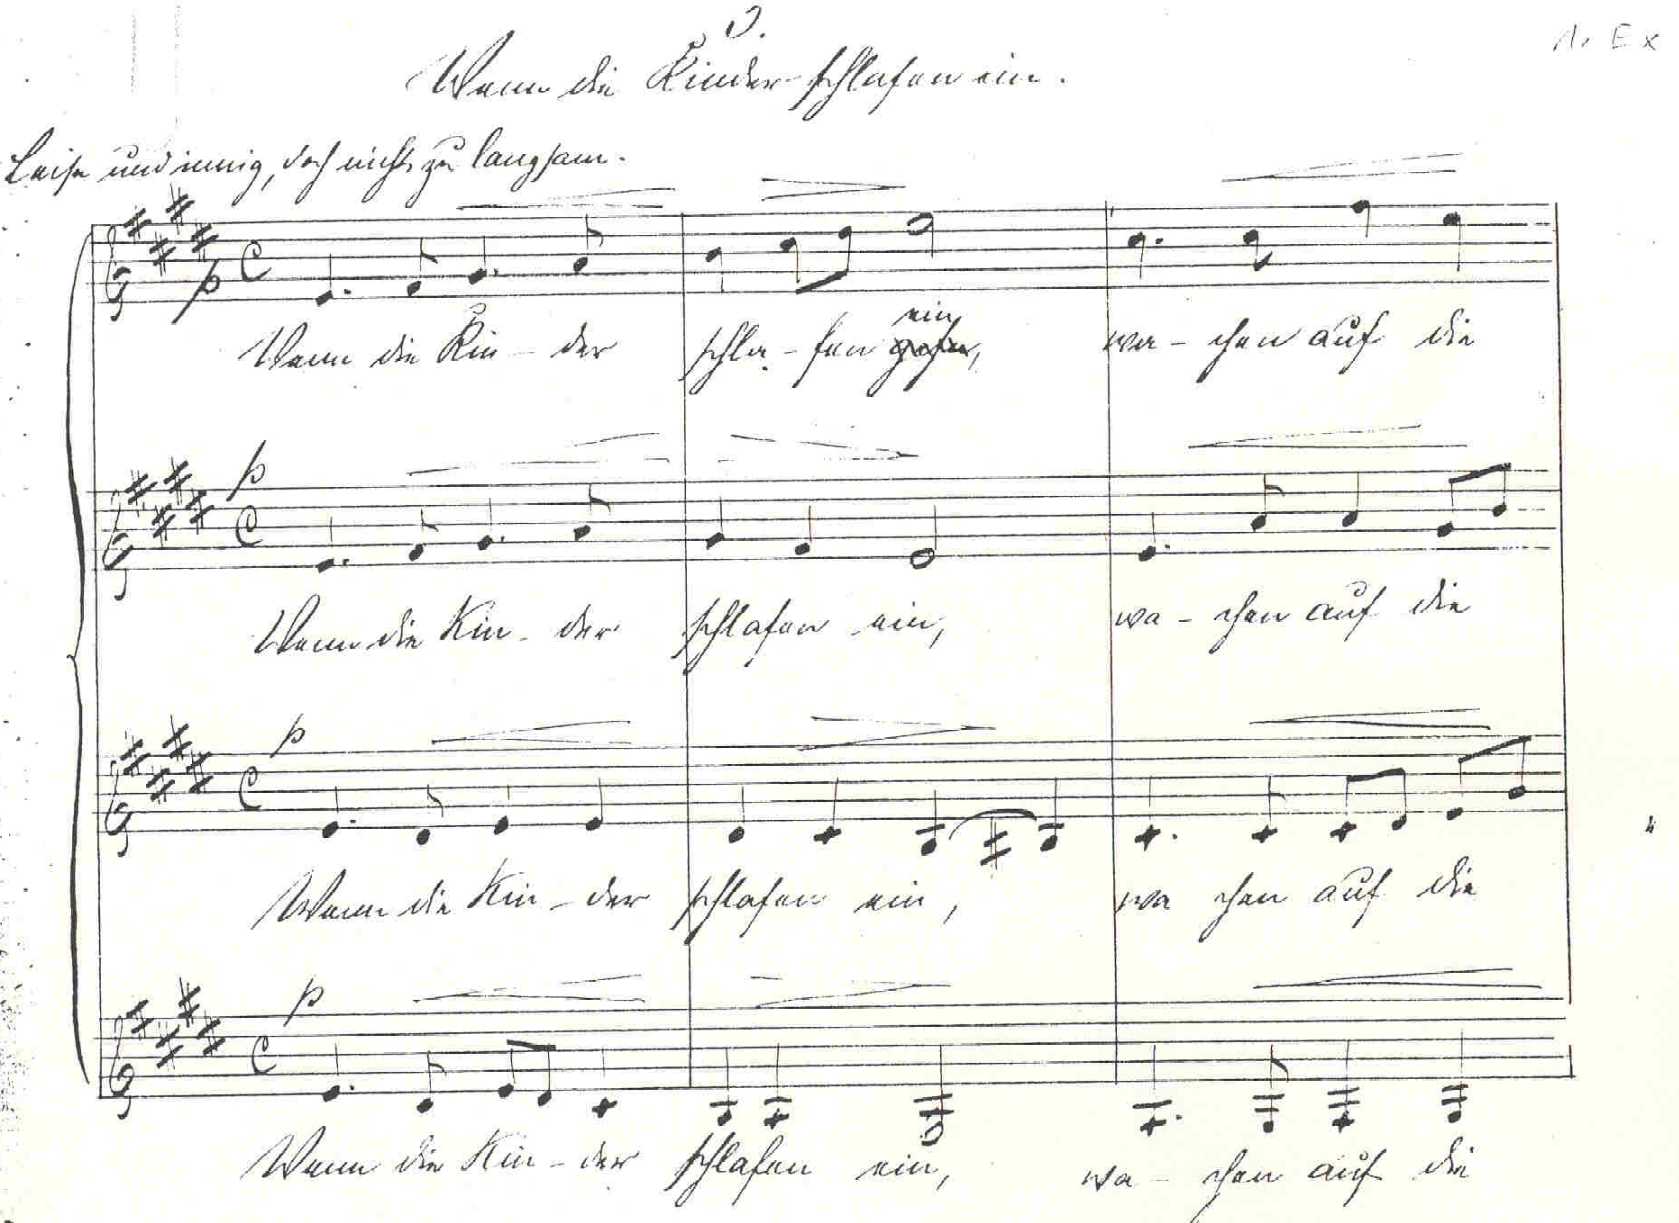 3.
Wenn die Kinder schlafen ein.
1. Ex
Leise und innig, doch nicht zu langsam.
p
Wenn die Kin - der schla - fen ein, wa - chen auf die
p
Wenn die Kin - der schlafen ein, wa - chen auf die
p
Wenn die Kin - der schlafen ein, wa chen auf die
p
Wenn die Kin - der schlafen ein, wa - chen auf die